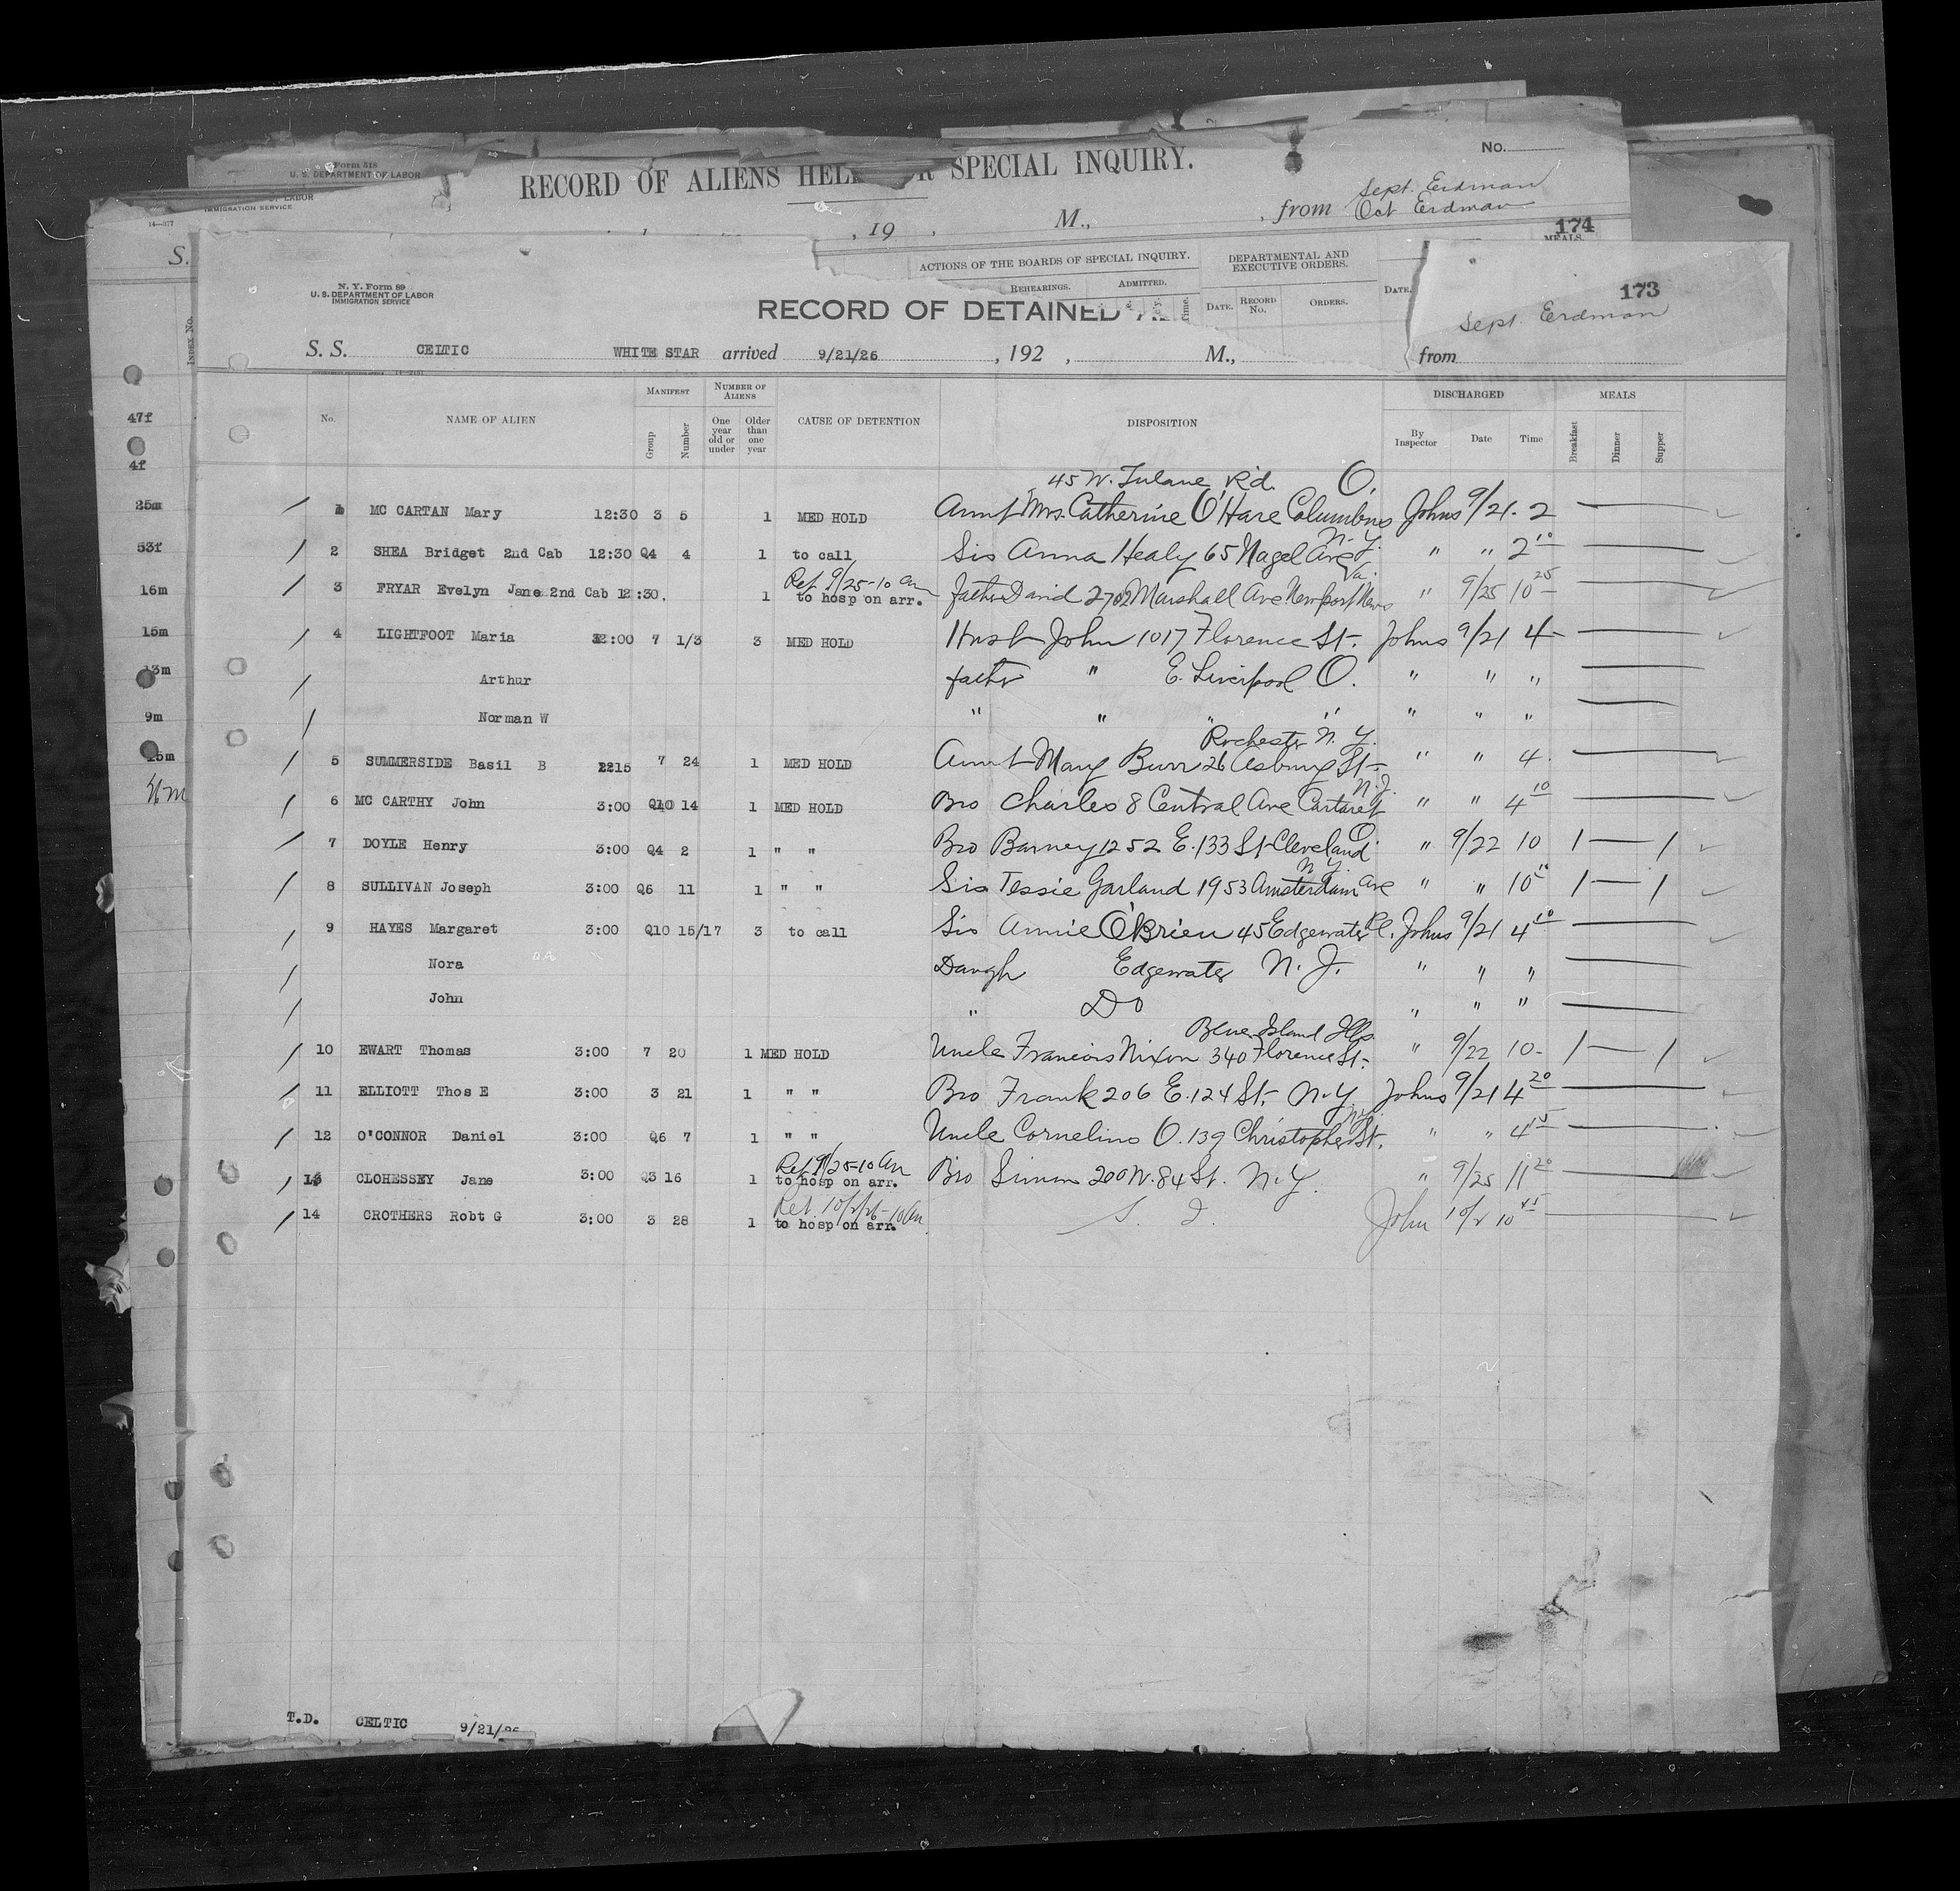 Form 518
U. S. DEPARTMENT OF LABOR
IMMIGRATION SERVICE
RECORD OF ALIENS SPECIAL INQUIRY.
No.
, 19 , M., , from Sept. Erdman
Oct Erdman
174
MEALS
S.
INDEX No.
ACTIONS OF THE BOARDS OF SPECIAL INQUIRY.
DEPARTMENTAL AND EXECUTIVE ORDERS.
REHEARINGS. ADMITTED.
DATE. RECORD No. ORDERS. DATE.
47f
4f
25m
53f
16m
15m
13m
9m
15m
N. Y. Form 89
U. S. DEPARTMENT OF LABOR
IMMIGRATION SERVICE
RECORD OF DETAINED
173
Sept. Erdman
S. S. CELTIC WHITE STAR arrived 9/21/26 , 192 , M., from
No. NAME OF ALIEN MANIFEST Group Number NUMBER OF ALIENS One year old or under Older than one year CAUSE OF DETENTION DISPOSITION DISCHARGED By Inspector Date Time MEALS Breakfast Dinner Supper
45 W. Tulane Rd. O.
1 MC CARTAN Mary 12:30 3 5 1 MED HOLD Aunt Mrs. Catherine O'Hare Columbus Johns 9/21 - 2
N. Y.
2 SHEA Bridget 2nd Cab 12:30 Q4 4 1 to call Sis Anna Healy 65 Nagel Ave " " 2 10
Ret 9/25-10 am Va.
3 FRYAR Evelyn Jane 2nd Cab 12:30. 1 to hosp on arr. father David 2702 Marshall Ave Newport News " 9/25 10 25
4 LIGHTFOOT Maria 12:00 7 1/3 3 MED HOLD Husb John 1017 Florence St. Johns 9/21 4 -
Arthur father " E. Liverpool O. " " "
Norman W " " " " " " "
Rochester N. Y.
5 SUMMERSIDE Basil B 1215 7 24 1 MED HOLD Aunt Mary Burr 26 Asbury St - " " 4.
N.J.
6 MC CARTHY John 3:00 Q10 14 1 MED HOLD Bro Charles 8 Central Ave Cartaret " " 4 10
7 DOYLE Henry 3:00 Q4 2 1 " " Bro Barney 1252 E. 133 St Cleveland O. " 9/22 10 1 — 1
N Y
8 SULLIVAN Joseph 3:00 Q6 11 1 " " Sis Tessie Garland 1953 Amsterdam Ave " " 10 1 — 1
9 HAYES Margaret 3:00 Q10 15/17 3 to call Sis Annie O'Brien 45 Edgewater Pl. Johns 9/21 4 10
Nora Daugh Edgewater N. J. " " "
John " Do " " "
Island Ills.
10 EWART Thomas 3:00 7 20 1 MED HOLD Uncle Francois Nixon 340 Florence St. " 9/22 10 - 1 — 1
11 ELLIOTT Thos E 3:00 3 21 1 " " Bro Frank 206 E. 124 St. N.Y Johns 9/21 4 20
12 O'CONNOR Daniel 3:00 Q6 7 1 " " Uncle Cornelius O. 139 Christopher St. " " 4
Ret 9/25-10 am
13 CLOHESSEY Jane 3:00 Q3 16 1 to hosp on arr. Bro Simon 200 W. 84 St. N.Y. " 9/25 11 20
Ret. 10/2/26-10 am
14 CROTHERS Robt G 3:00 3 28 1 to hosp on arr. S. I. John 10/2 10 45
T.D. CELTIC 9/21/26